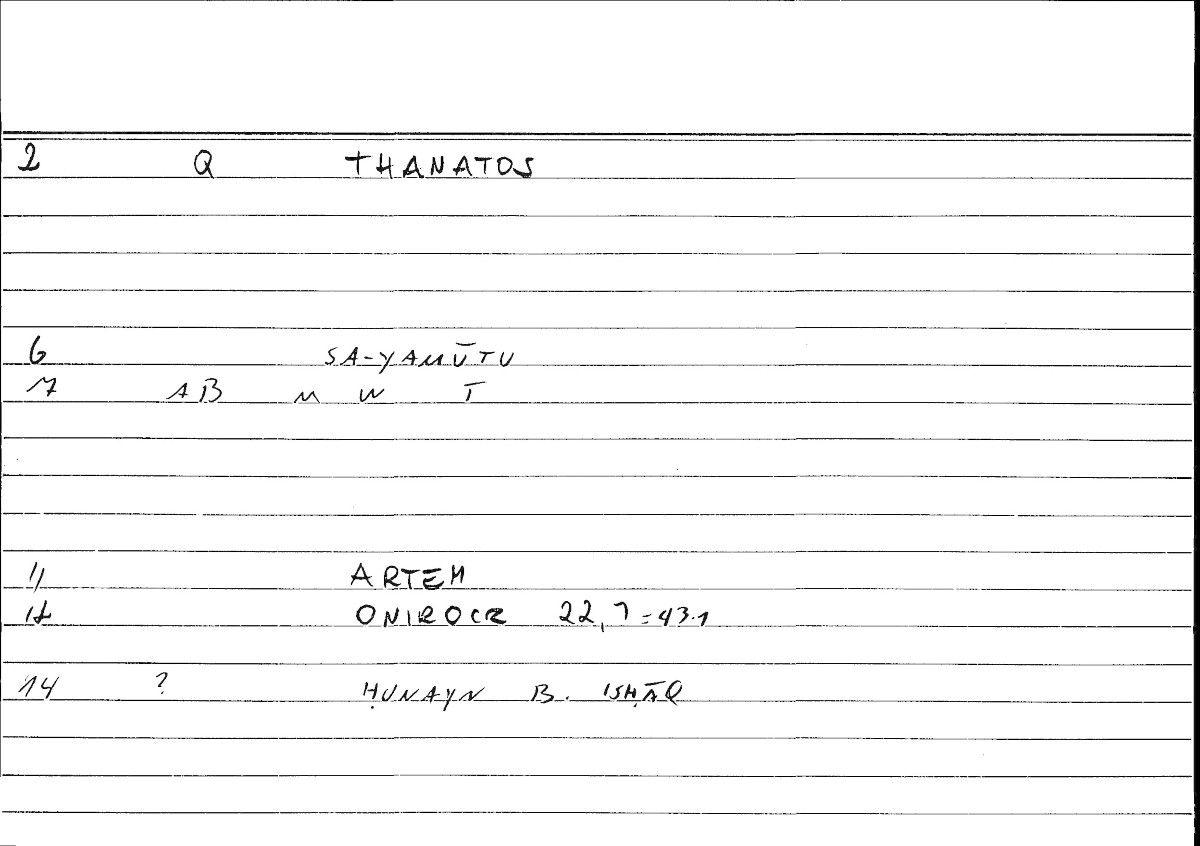 2 Q THANATOS
6 SA-YAMŪTU
7 AB M W T
11 ARTEM
12 ONIROCR 22,7=43.1
14 ? ḤUNAYN B. ISḤĀQ